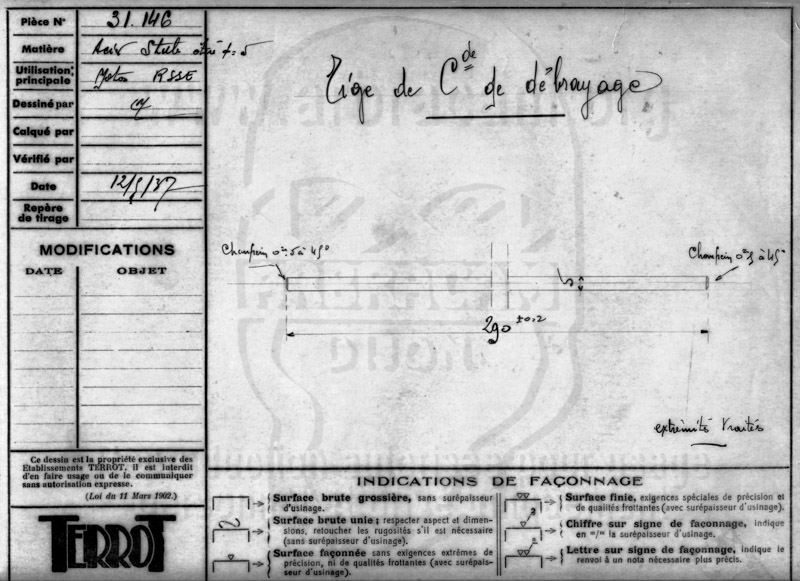 Pièce N° 31.146
Matière Acier Stubs étiré + = 5
Utilisation principale Motos RSSE
Dessiné par
Calqué par
Vérifié par
Date 12/5/37
Repère de tirage
MODIFICATIONS
DATE OBJET
Tige de Cde de débrayage
Chanfrein 0m.5 à 45°
Chanfrein 0m5 à 45°
5
290 ±0.2
extrémités traités
Ce dessin est la propriété exclusive des
Etablissements TERROT, il est interdit
d'en faire usage ou de le communiquer
sans autorisation expresse.
(Loi du 11 Mars 1902.)
TERROT
INDICATIONS DE FAÇONNAGE
Surface brute grossière, sans surépaisseur
d'usinage.
Surface brute unie; respecter aspect et dimen-
sions, retoucher les rugosités s'il est nécessaire
(sans surépaisseur d'usinage).
Surface façonnée sans exigences extrêmes de
précision, ni de qualités frottantes (avec surépais-
seur d'usinage).
Surface finie, exigences spéciales de précision et
de qualités frottantes (avec surépaisseur d'usinage).
2
Chiffre sur signe de façonnage, indique
en m/m la surépaisseur d'usinage.
Lettre sur signe de façonnage, indique le
renvoi à un nota nécessaire plus précis.